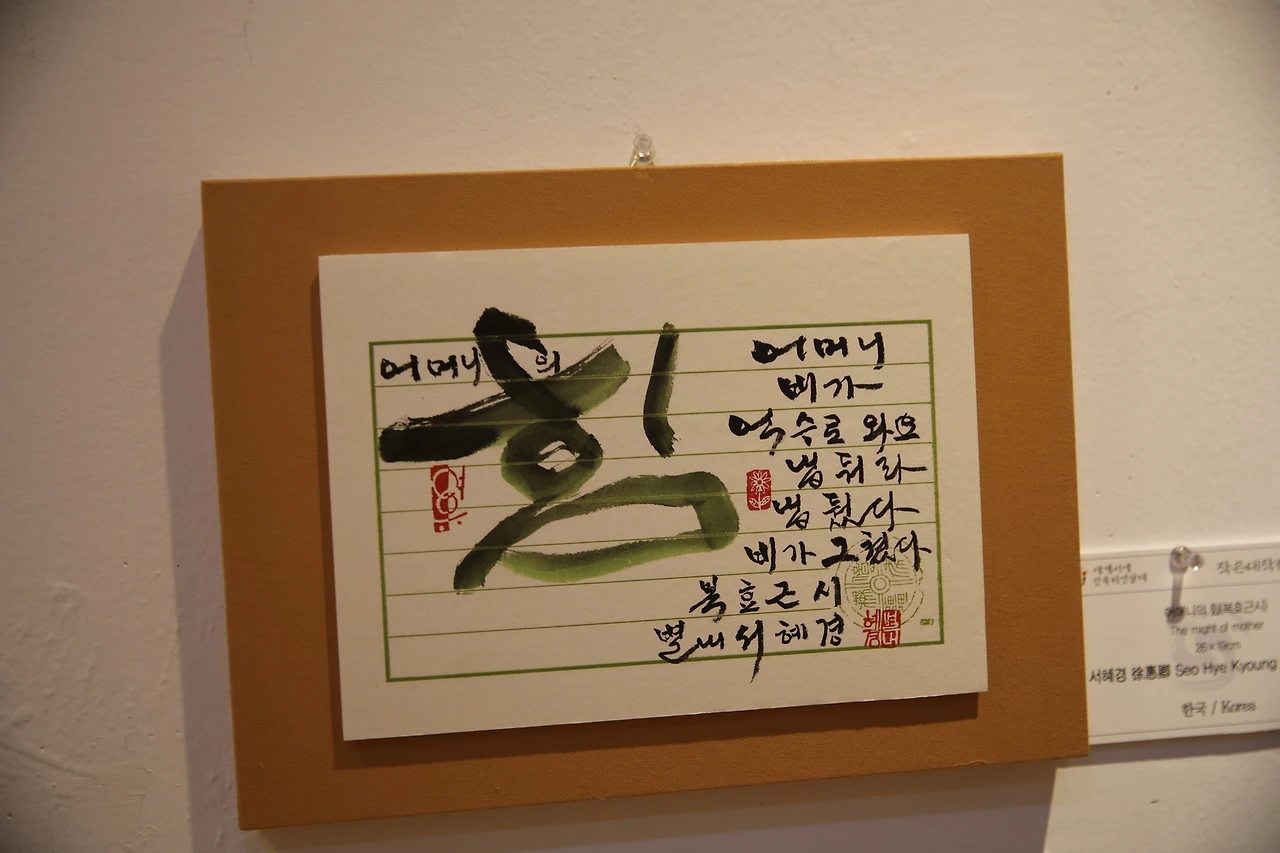 어머니의
힘
어머니
비가
억수로 와요
냅둬라
냅뒀다
비가 그쳤다
복효근 시
별내 서혜경
세계서예
전북비엔날레
작은대작전
어머니의 힘(복효근시)
The might of mother
26×19cm
서혜경 徐惠卿 Seo Hye Kyoung
한국 / Korea